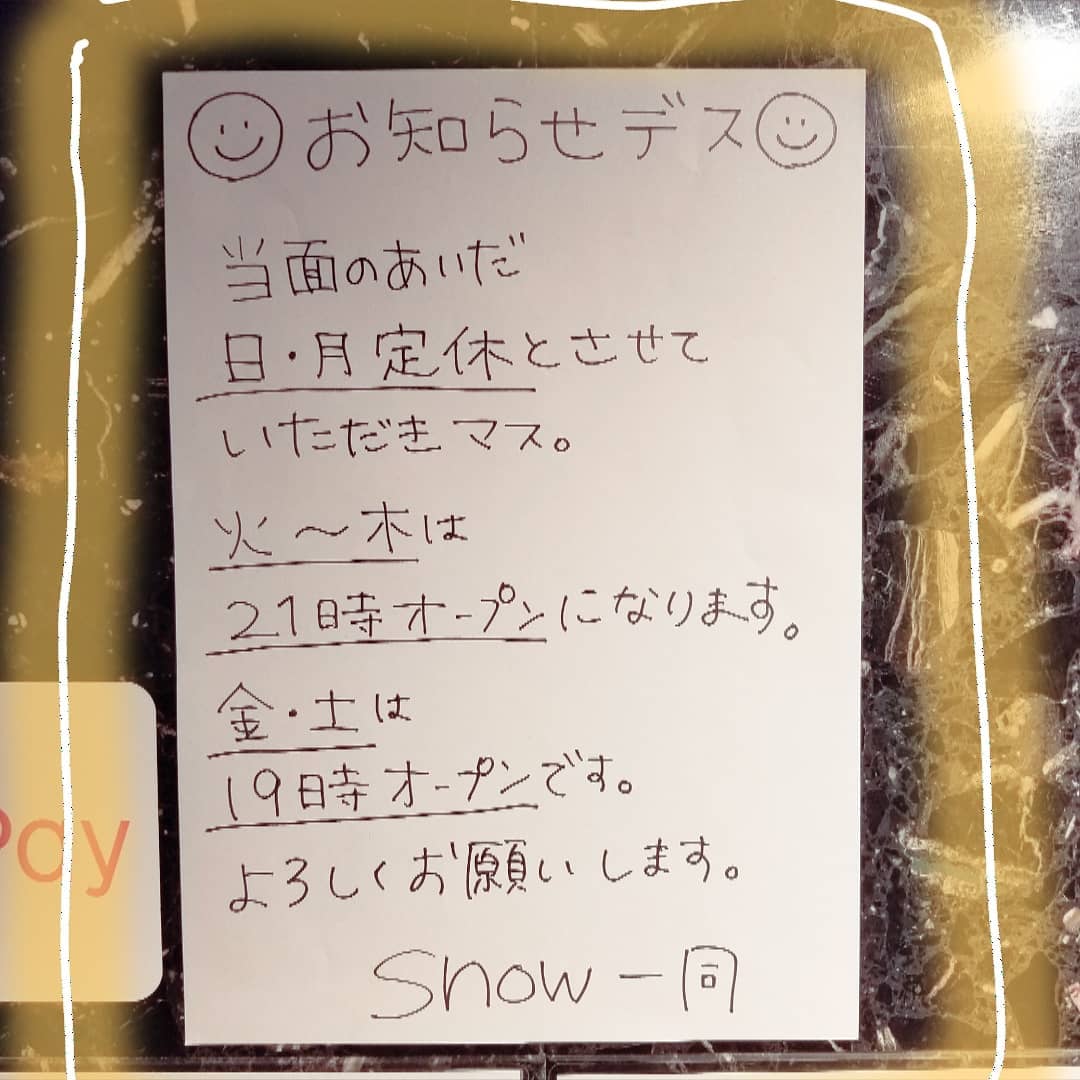 お知らせデス
当面のあいだ
日・月定休とさせて
いただきマス。
火〜木は
21時オープンになります。
金・土は
19時オープンです。
よろしくお願いします。
Snow一同
Pay